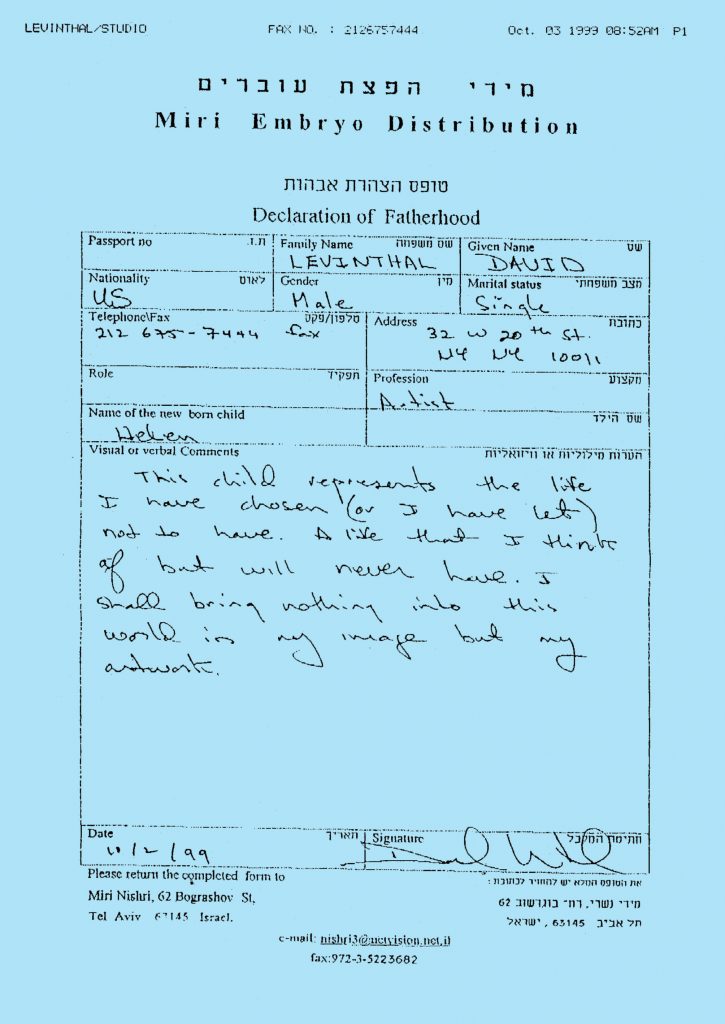 LEVINTHAL/STUDIO FAX NO. : 2126757444 Oct. 03 1999 08:52AM P1
מידי הפצת עוברים
Miri Embryo Distribution
טופס הצהרת אבהות
Declaration of Fatherhood
Passport no ת.ז. Family Name שם משפחה Given Name שם
LEVINTHAL DAVID
Nationality לאום Gender מין Marital status מצב משפחתי
US Male Single
Telephone\Fax טלפון/פקס Address כתובת
212 675-7444 fax 32 W 20th St.
NY NY 10011
Role תפקיד Profession מקצוע
Artist
Name of the new born child שם הילד
Helen
Visual or verbal Comments הערות מילוליות או וויזואליות
This child represents the life
I have chosen (or I have let)
not to have. A life that I think
of but will never have. I
shall bring nothing into this
world in my image but my
artwork.
Date תאריך Signature חתימת המקבל
10/2/99
Please return the completed form to את הטופס המלא יש להחזיר לכתובת :
Miri Nishri, 62 Bograshov St, מירי נשרי, רח' בוגרשוב 62
Tel Aviv 67145 Israel. תל אביב 63145, ישראל
e-mail: nishri3@netvision.net.il
fax:972-3-5223682